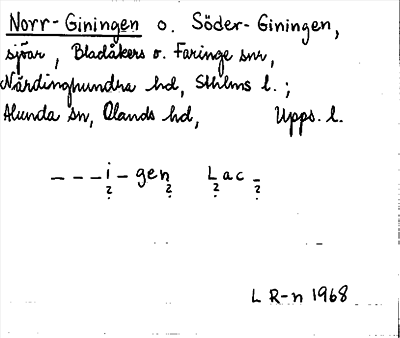 Norr-Giningen o. Söder-Giningen,
sjöar, Bladåkers o. Faringe snr,
Närdinghundra hd, Sthlms l.;
Alunda sn, Olands hd, Upps. l.
---i-gen Lac-
? ? ? ?
L R-n 1968